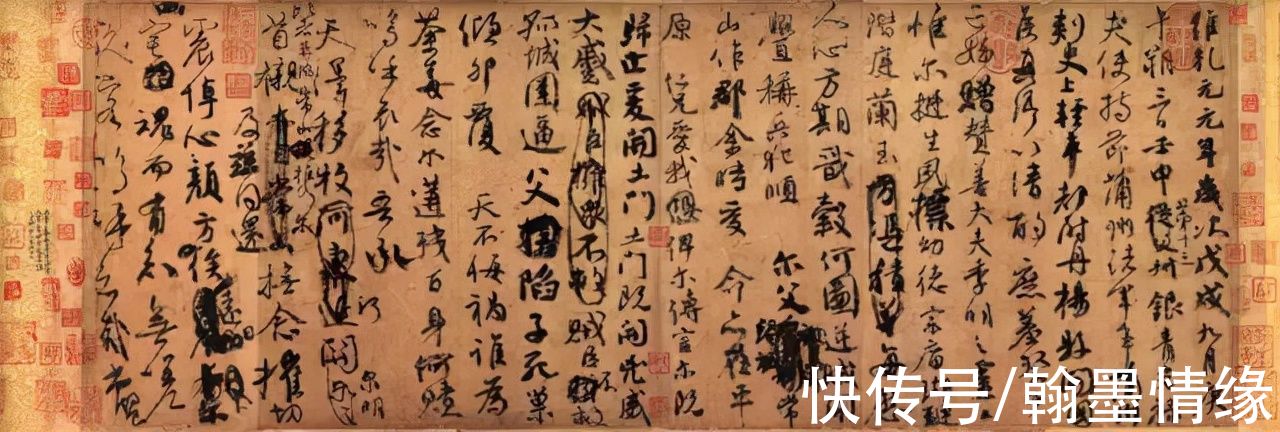 維乾元元年歲次戊戌九月庚
午朔三日壬申第十三從父銀青
夫使持節蒲州諸軍事
刺史上輕車都尉丹楊縣開國
侯真卿以清酌庶羞祭
亡姪贈贊善大夫季明之靈
惟爾挺生夙標幼德宗廟瑚璉
階庭蘭玉方憑積善每慰
人心方期戩穀何圖逆賊
釁稱兵犯順 爾父 常
山作郡余時受命亦在平
原仁兄愛我俾爾傳言爾既
歸止爰開土門土門既開凶威
大蹙賊臣擁眾不救賊臣不救
孤城圍逼父陷子死巢
傾卵覆 天不悔禍誰為
荼毒念爾遘殘百身何贖
嗚呼哀哉吾承
天澤移牧河東近河關泉明
比者再陷常山攜爾
首櫬
及茲同還
撫念摧切
震悼心顏方俟遠日
爾幽宅魂而有知無嗟
久客嗚呼哀哉尚饗
快传号/翰墨情缘